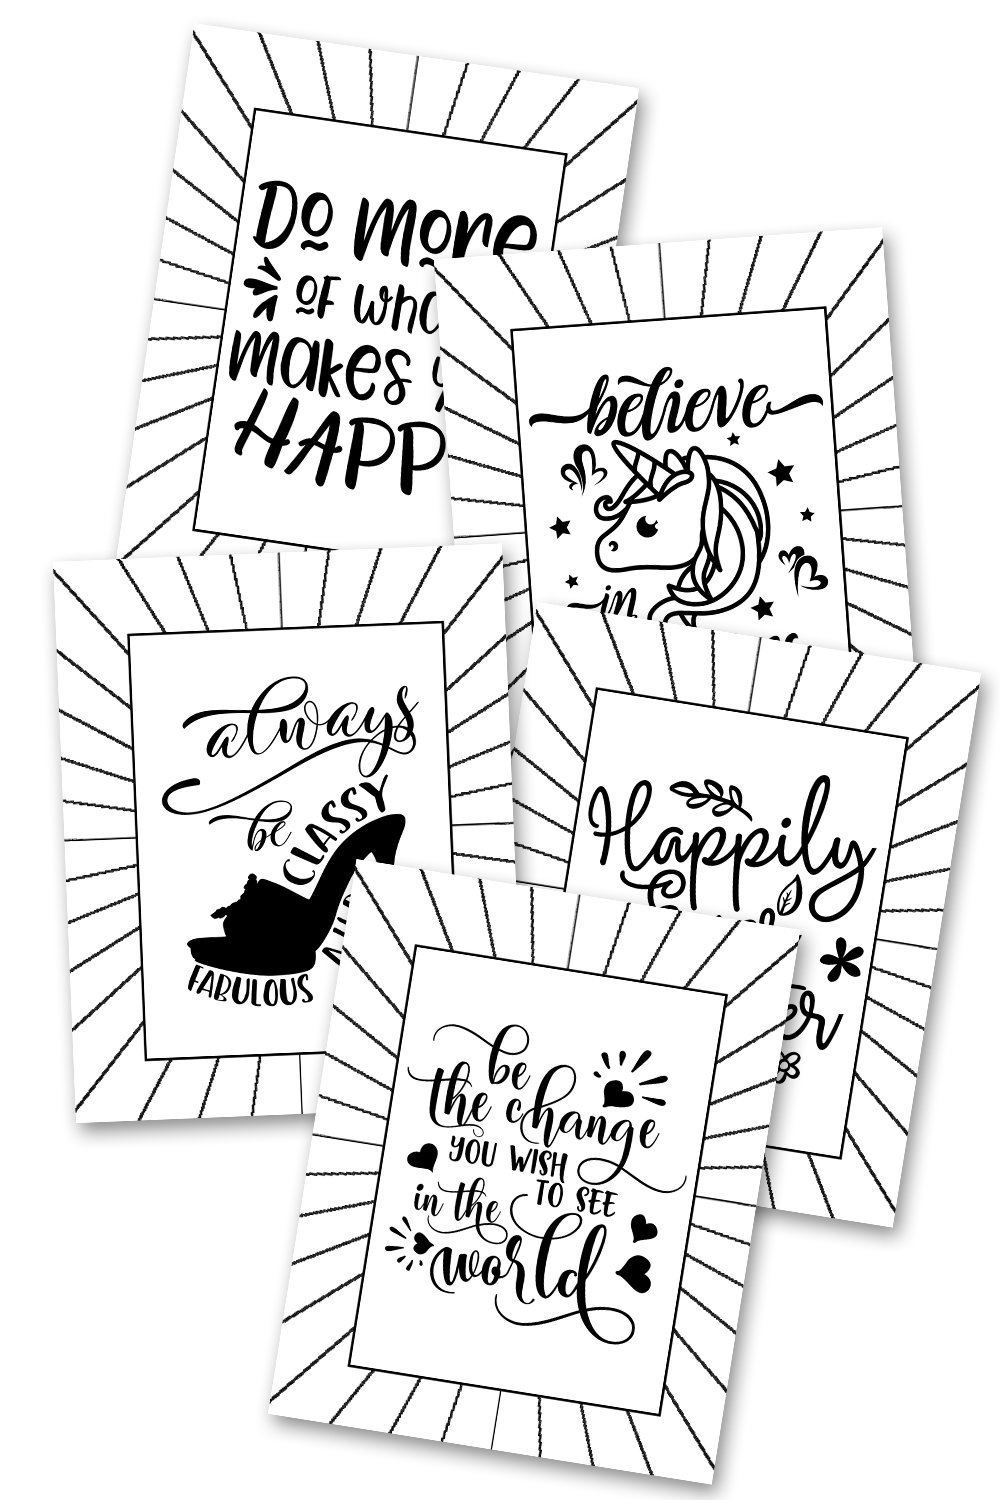 Do more
of wha
makes y
HAPP
believe
in
always
be CLASSY
FABULOUS
Happily
be
the change
YOU WISH
TO SEE
in the
world